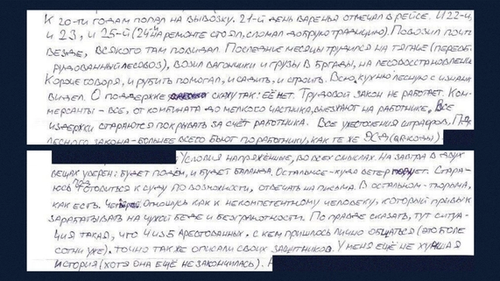 К 20-ти годам попал на вывозку. 21-й день варенья отмечал в рейсе. И 22-й,
и 23, и 25-й (24 на ремонте стоял, сломал добрую традицию). Повозил почти
везде, всякого там повидал. Последние месяцы трудился на тягаче (переобо-
рудованный лесовоз), возил вагончики и грузы в бригады, на лесовосстановлени
Короче говоря, и рубить помогал, и садить, и строить. Всю кухню лесную с изнан
видел. О поддержке скажу так: её нет. Трудовой закон не работает. Ком-
мерсанты - все, от комбината до мелкого частника, выезжают на работнике. Все
издержки стараются покрывать за счёт работника. Все ужесточения штрафов,
лесного закона - больнее всего бьют по работнику, как те же
Условия напряжённые, во всех смыслах. На завтра в двух
вещах уверен: будет подъём, и будет баланда. Остальное - куда ветер подует. Стара-
юсь готовиться к суду по возможности, отвечать на письма. В остальном - тюрьма,
как есть. отношусь как к некомпетентному человеку, который привык
зарабатывать на чужой беде и безграмотности. По правде сказать, тут ситуа-
ция такая, что 4 из 5 арестованных, с кем пришлось лично общаться (а это боле
сотни уже), точно так же описали своих защитников. У меня ещё не худшая
история (хотя она ещё не закончилась).